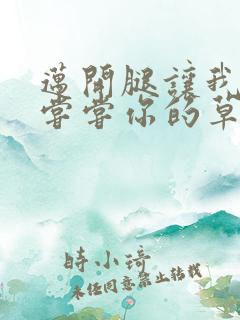 邁開腿讓我
嘗嘗你的草
時小琦
未經同意禁止轉載